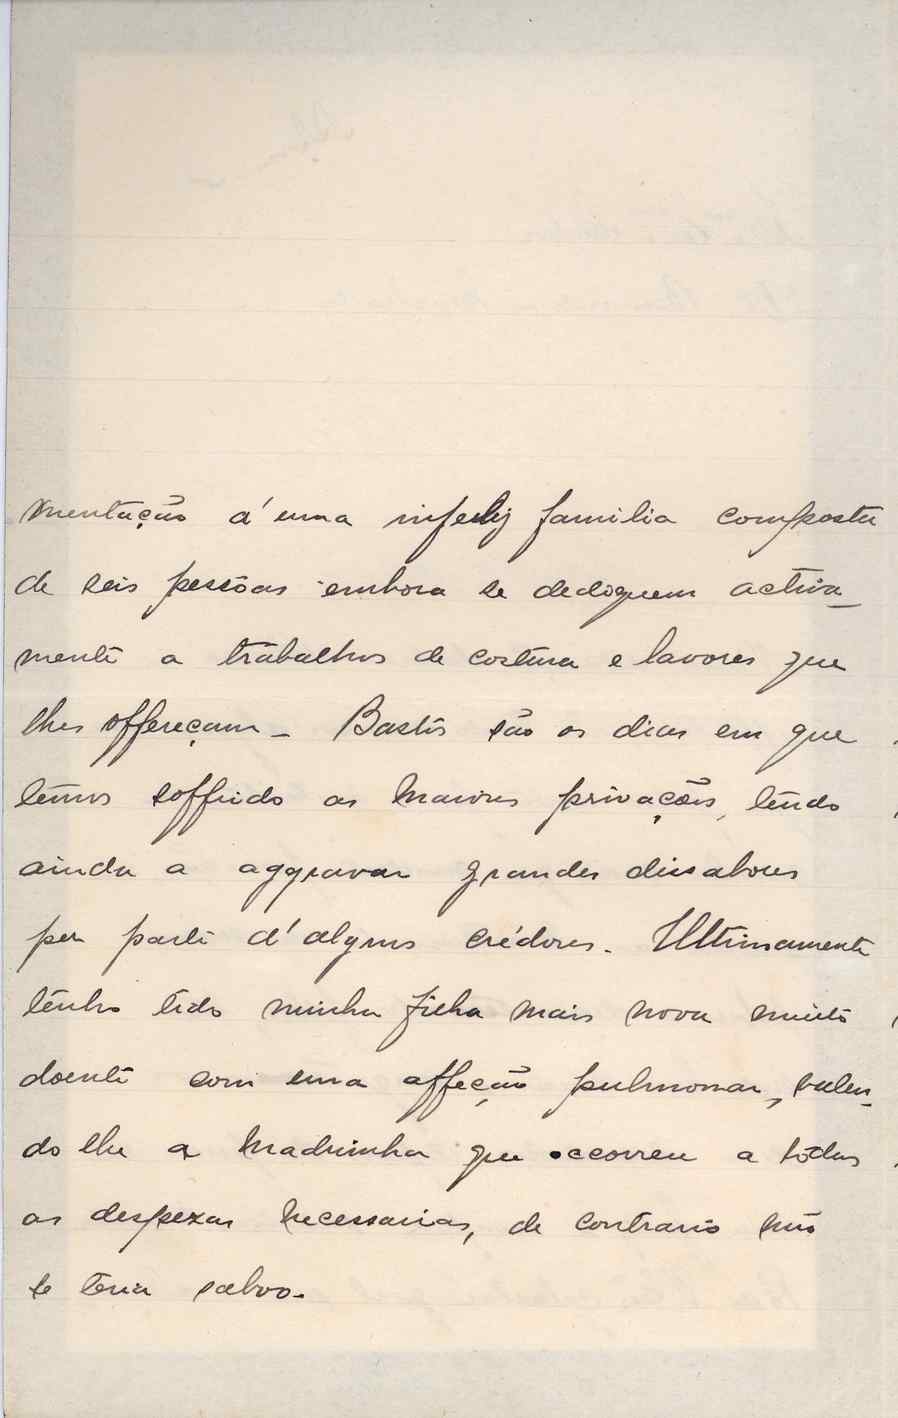 mentação á uma infeliz familia composta
de seis pessôas embora se dediquem activa_
mente a trabalhos de costura e lavores que
lhes offereçam _ Bastos são os dias em que
temos soffrido as maiores privações, tendo
ainda a aggravar grandes dissabores
por parte d'alguns crédores. Ultimamente
tenho tido minha filha mais nova muito
doente com uma affeção pulmonar, valen_
do lhe a Madrinha que occorreu a todas
as despezas necessarias, de contrario não
se teria salvo.